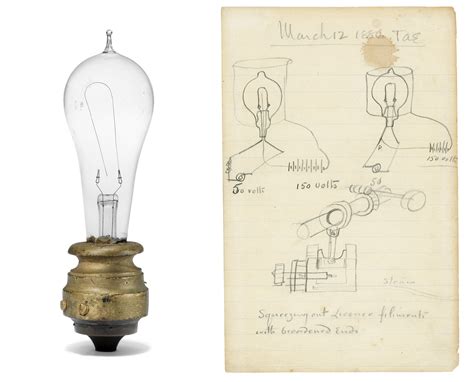 March 12 188 TAE
50 volts
150 volts
150 volts
Squeezing out filiments
with broadened Ends